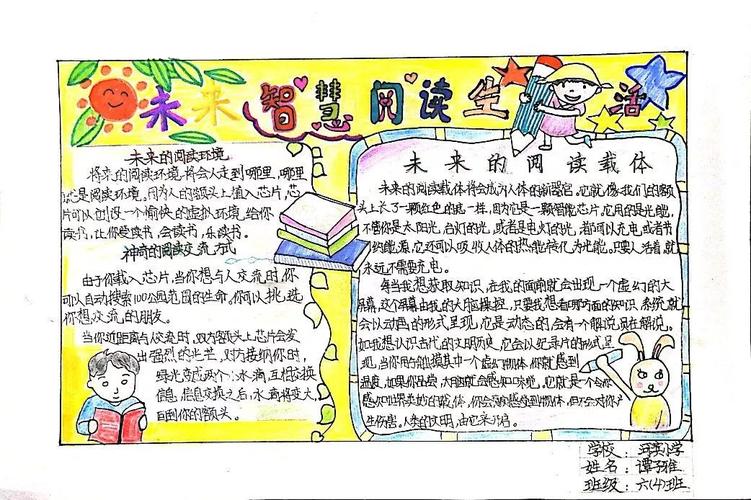 未来智慧阅读生活
未来的阅读环境
将来的阅读环境,将会人走到哪里,哪里
就是阅读环境。因为人的额头上植入芯片,芯
片可以创设一个愉快的虚拟环境,给你
读书,让你爱读书,会读书,乐读书。
神奇的阅读交流方式
由于你载入芯片,当你想与人交流时,你
可以自动搜索100公里范围的生命,你可以挑选
你想交流的朋友。
当你近距离与人交流时,双方额头上芯片会发
出强烈的光芒,对方接纳你时,
绿光变成两个小水滴,互相交换
信息,信息交换之后,水滴将变大
回到你的额头。
未来的阅读载体
未来的阅读载体将会成为人体的新器官,它就像我们的额
头上长了一颗红色的痣一样,因为它是一颗智能芯片,它用的是光能,
不管你是太阳光,台灯的光,或者是电灯的光,都可以充电,或者节
约能源,它还可以吸收人体的热能转化为光能。只要人活着,就
永远不需要充电。
每当我想获取知识,在我的面前就会出现一个虚幻的大
屏幕,这个屏幕由我的大脑操控,只要我想看哪方面的知识,系统就
会以动画的形式呈现,它是动态的,会有一个解说员在解说。
如我想认识古代的文明历史,它会以纪录片的形式呈
现,当你用手触摸其中一个虚幻物体,你就感到
温度,如果你品尝,大脑就会感知味觉。它就是一个令你
感知如果类的载体,你会感受到物体,但不会对你产
生伤害。人类的文明,由它来介绍。
学校:
姓名:谭子雅
班级:六(4)班